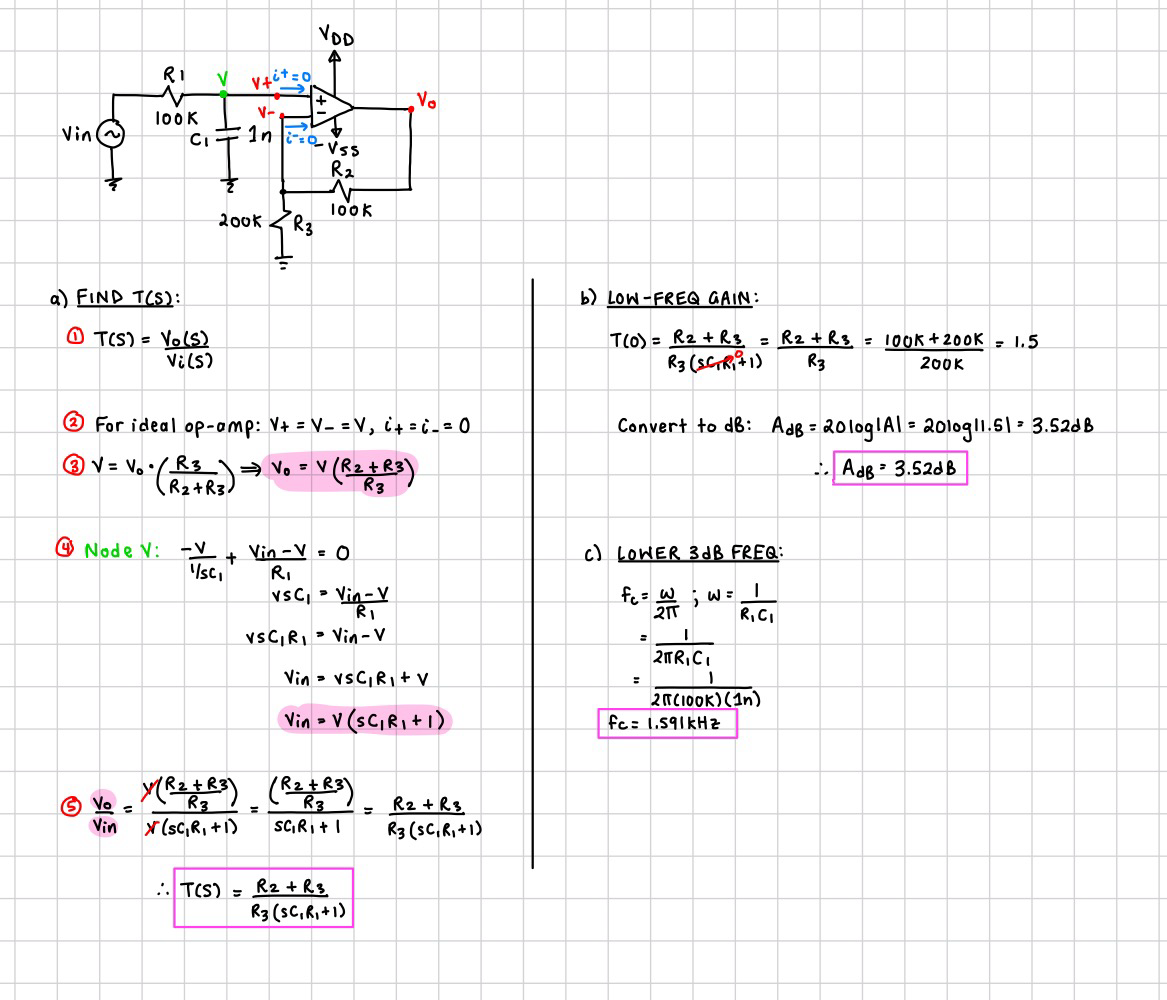 VDD
R1
V
V+
i+=0
V-
i-=0
Vo
100K
Vin
C1
1n
-VSS
R2
100K
200K
R3
a) FIND T(S):
① T(S) = Vo(S)/Vi(S)
② For ideal op-amp: V+ = V- = V, i+ = i- = 0
③ V = Vo·(R3/(R2+R3)) ⟹ Vo = V((R2+R3)/R3)
④ Node V: -V/(1/sC1) + (Vin-V)/R1 = 0
VsC1 = (Vin-V)/R1
VsC1R1 = Vin-V
Vin = VsC1R1 + V
Vin = V(sC1R1+1)
⑤ Vo/Vin = V((R2+R3)/R3)/V(sC1R1+1) = ((R2+R3)/R3)/(sC1R1+1) = (R2+R3)/(R3(sC1R1+1))
∴ T(S) = (R2+R3)/(R3(sC1R1+1))
b) LOW-FREQ GAIN:
T(0) = (R2+R3)/(R3(sC1R1+1)) 0 = (R2+R3)/R3 = (100K+200K)/200K = 1.5
Convert to dB: AdB = 20log|A| = 20log|1.5| = 3.52dB
∴ AdB = 3.52dB
c) LOWER 3dB FREQ:
fc = ω/2π ; ω = 1/(R1C1)
= 1/(2πR1C1)
= 1/(2π(100K)(1n))
fc = 1.591kHz